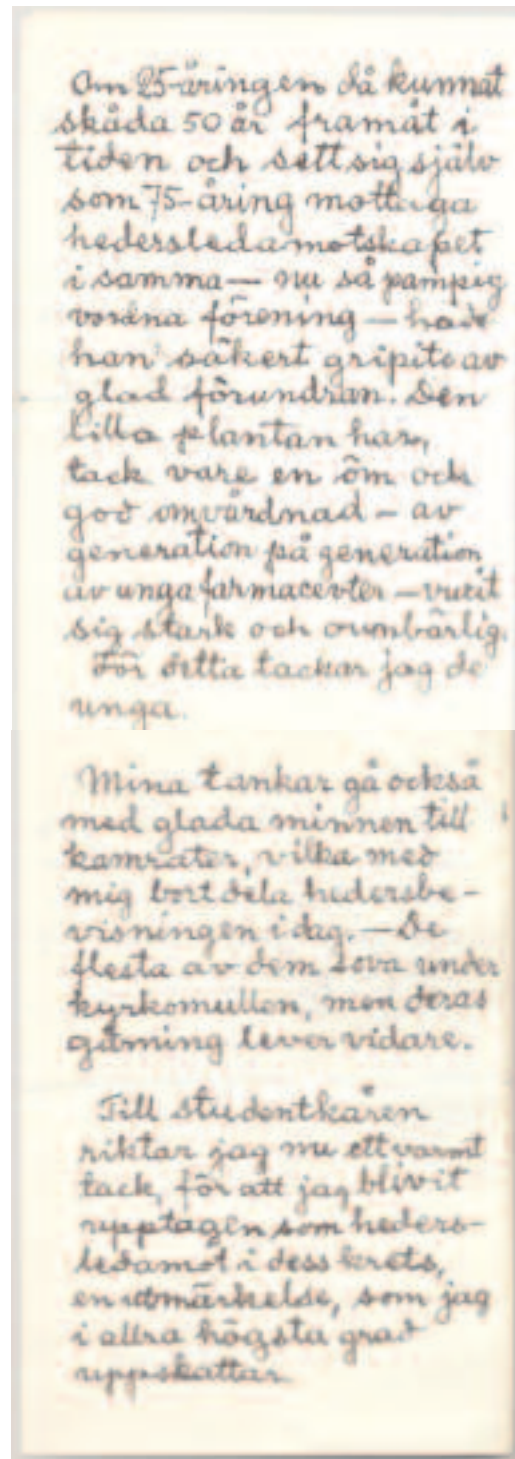 Om 25-åringen då kunnat
skåda 50 år framåt i
tiden och sett sig själv
som 75-åring mottaga
hedersledamotskapet
i samma — nu så pampig
vordna förening — hade
han säkert gripits av
glad förundran. Den
lilla plantan har,
tack vare en öm och
god omvårdnad — av
generation på generation
av unga farmacevter — vuxit
sig stark och oumbärlig.
För detta tackar jag de
unga.
Mina tankar gå också
med glada minnen till
kamrater, vilka med
mig bort dela hedersbe-
visningen idag. — De
flesta av dem sova under
kyrkomullen, men deras
gärning lever vidare.
Till studentkåren
riktar jag nu ett varmt
tack, för att jag blivit
upptagen som heders-
ledamot i dess krets,
en utmärkelse, som jag
i allra högsta grad
uppskattar.